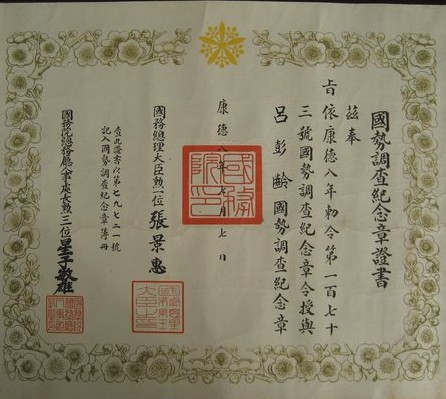 國勢調查紀念章證書
茲奉
旨依康德八年勅令第一百七十
三號國勢調查紀念章令授與
呂彭齡國勢調查紀念章
康德八年七月七日
國務院印
國務總理大臣勲一位張景惠
查此證書以第七九七二一號
記入國勢調查紀念章簿冊
國務院總務廳人事處長勲三位星子敏雄